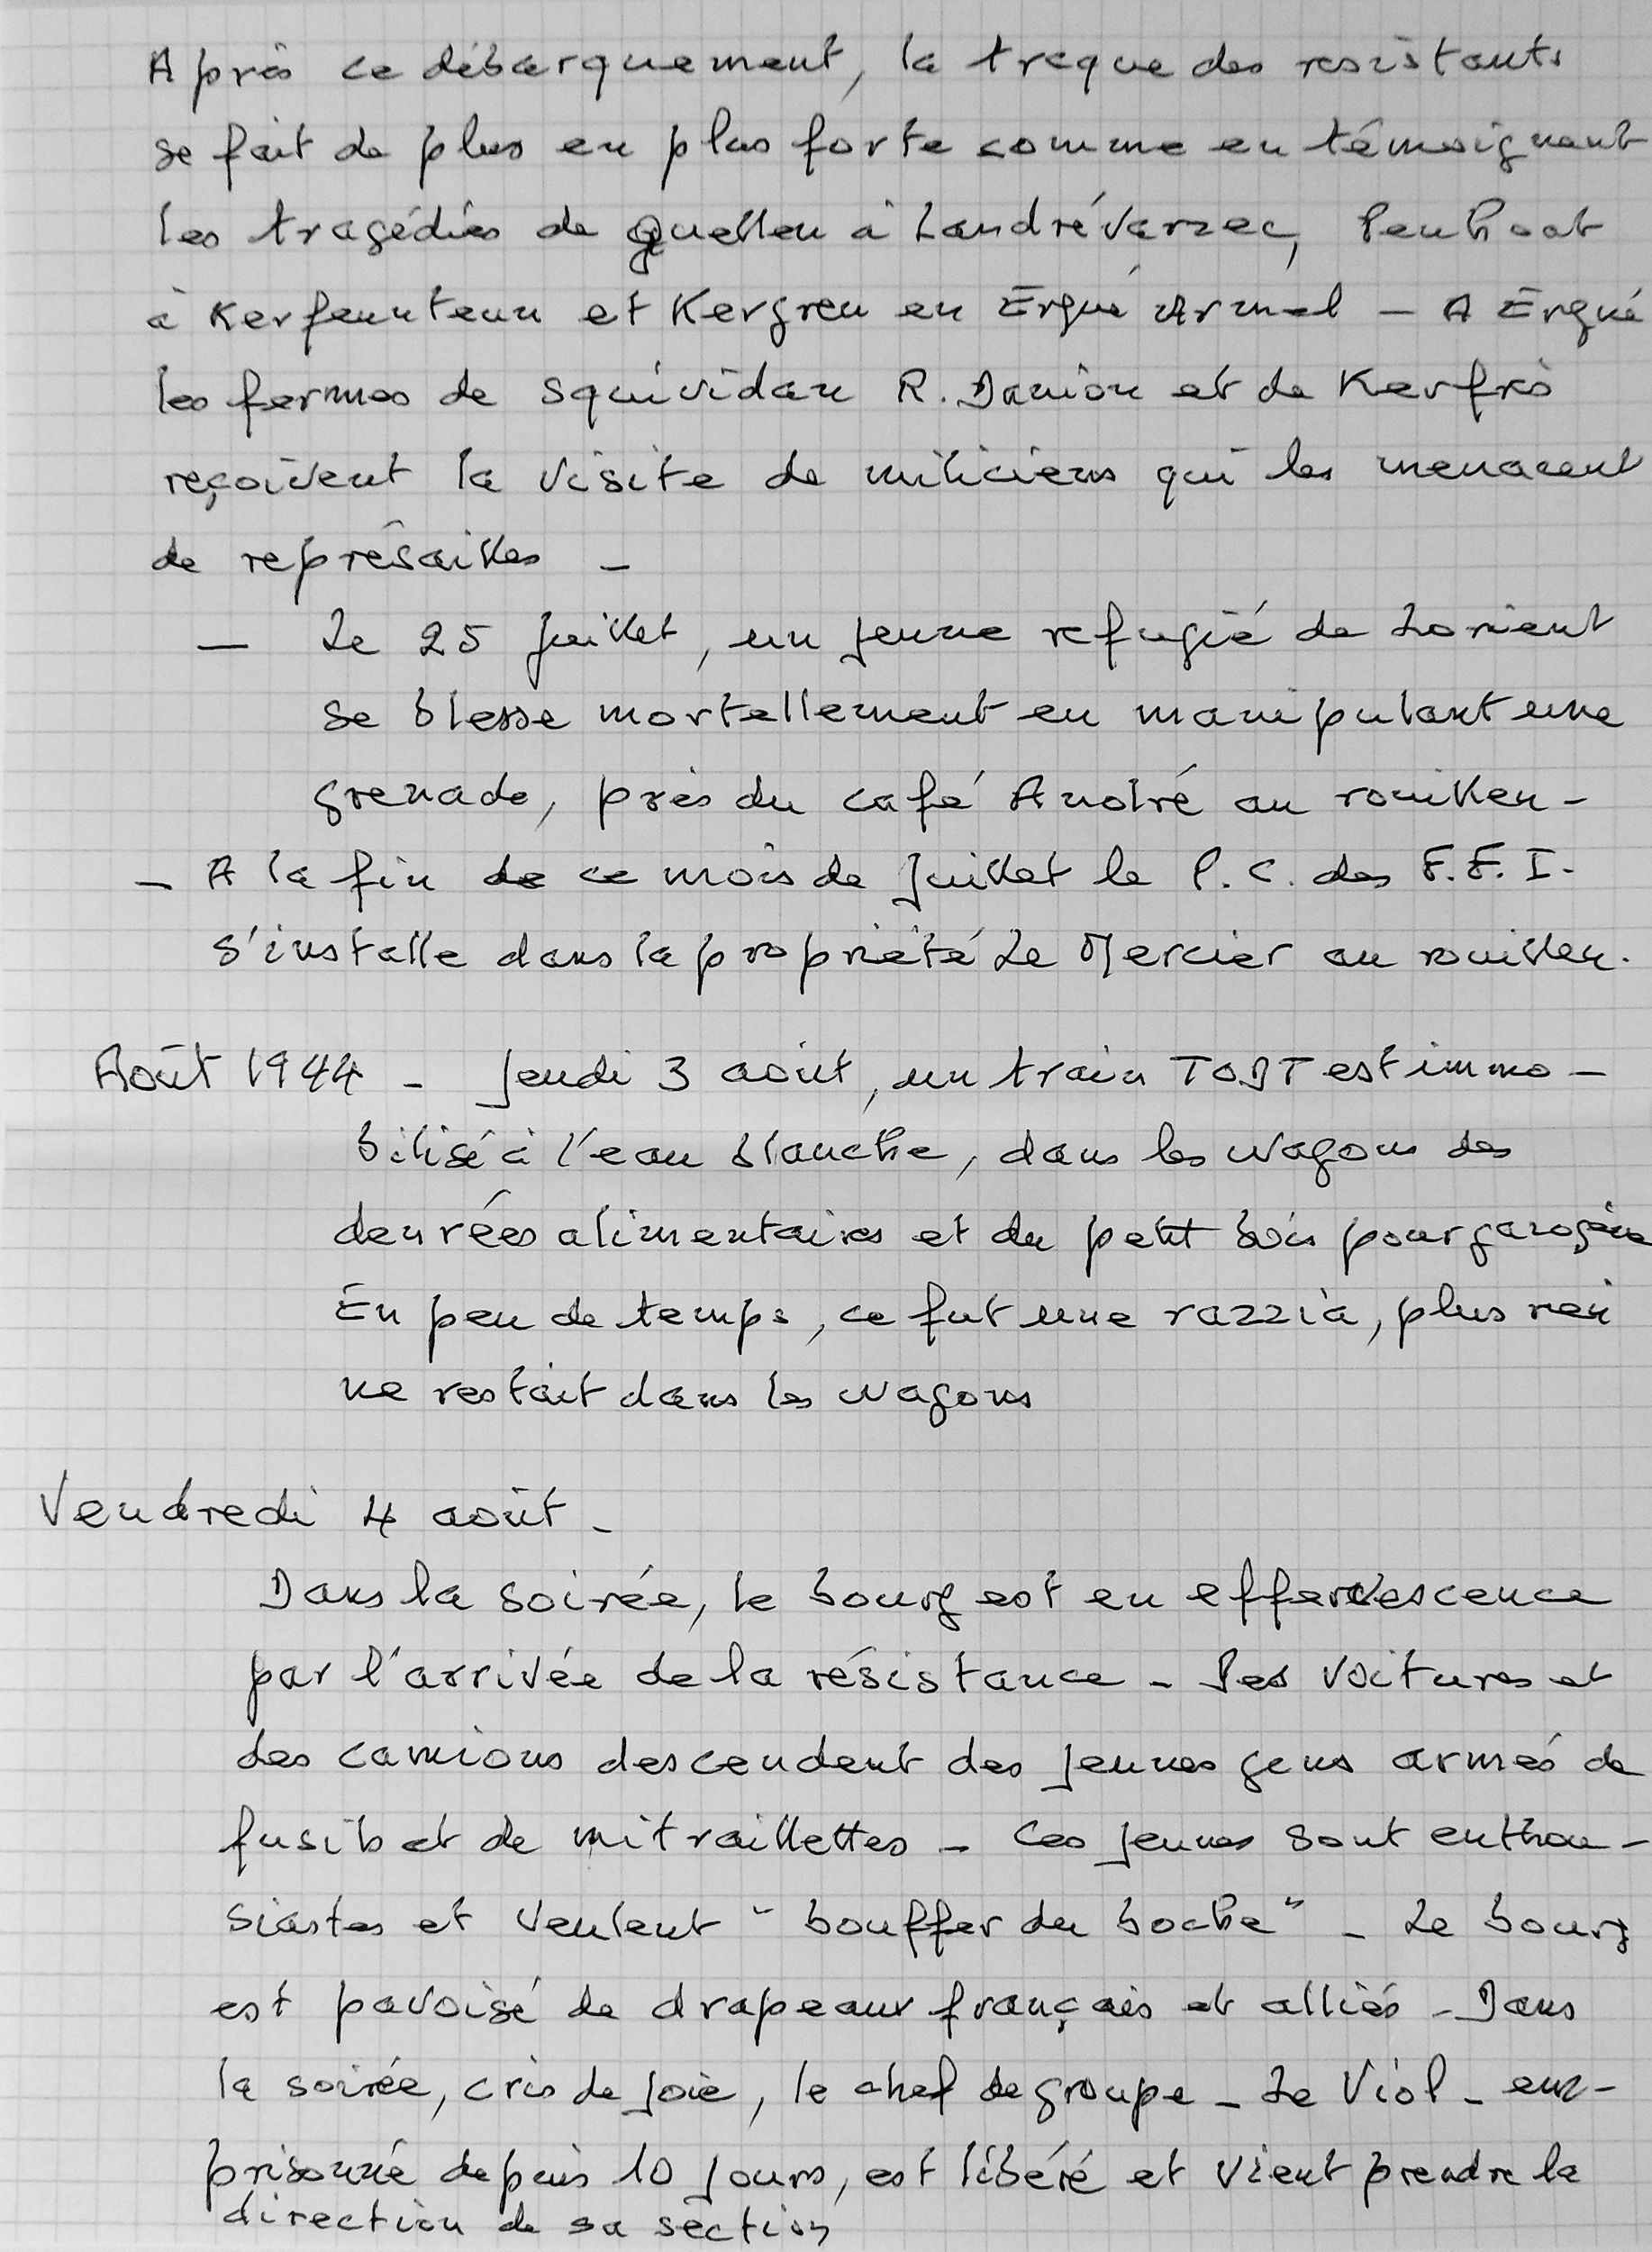 Après ce débarquement, la traque des resistants
se fait de plus en plus forte comme en témoignent
les tragédies de Quellen à Landrévarzec, Penhoat
à Kerfeunteun et Kergren en Ergué Armel - A Ergué
les fermes de Squividan R. Danion et de Kerfrès
reçoivent la visite de miliciens qui les menacent
de représailles -
- Le 25 juillet, un jeune refugié de Lorient
se blesse mortellement en manipulant une
grenade, près du café André au rouillen -
- A la fin de ce mois de juillet le P.C. des F.F.I.
s'installe dans la propriété Le Mercier au rouillen.
Août 1944 - jeudi 3 août, un train TODT est immo-
bilisé à l'eau blanche, dans les wagons des
denrées alimentaires et du petit bois pour gazogène
En peu de temps, ce fut une razzia, plus rien
ne restait dans les wagons
Vendredi 4 août -
Dans la soirée, le bourg est en effervescence
par l'arrivée de la résistance - Des voitures et
des camions descendent des jeunes gens armés de
fusils et de mitraillettes - Ces jeunes sont enthou-
siastes et veulent "bouffer du boche" - Le bourg
est pavoisé de drapeaux français et alliés - Dans
la soirée, cris de joie, le chef de groupe - Le Viol - em-
prisonné depuis 10 jours, est libéré et vient prendre la
direction de sa section